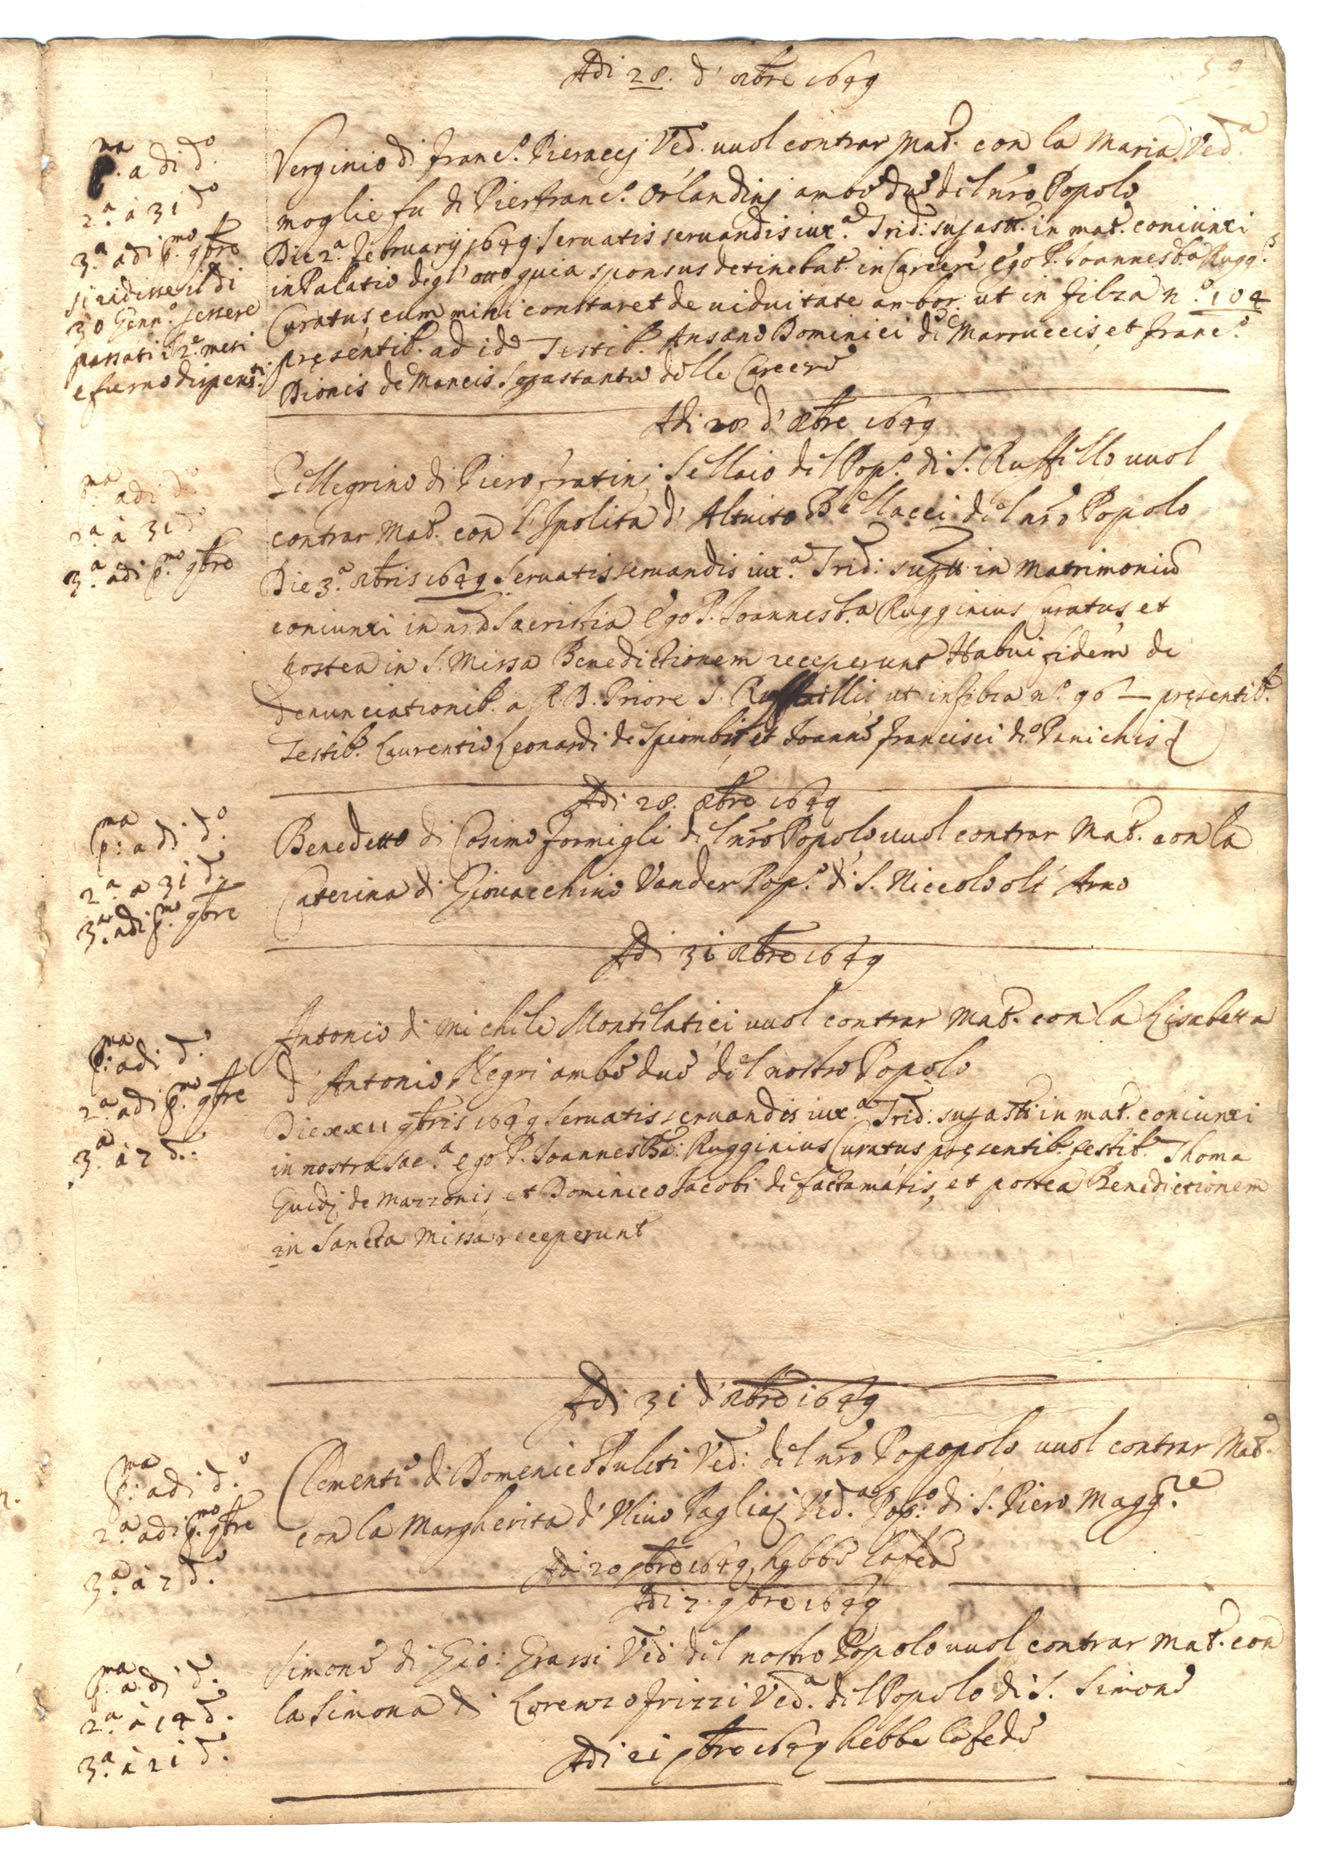 Adi 28. d' 8bre 1649
59
p.ma a di d.o
2.a à 31 d.o
3.a adi p.mo 9bre
si ridisse il di
30 Genn.o
passati i 2 mesi
e furno dispens.ti
Verginio di Franc.o Pieraccj Ved. vuol contrar Mat.o con la Maria Ved.a
moglie fu di Pierfranc.o Orlandinj ambo due del nro Popolo
Die 2.a februarij 1649. Servatis servandis iux.a Trid: sup.asti in mat.o coniunxi
in Palatio degl'otto quia sponsus detinebat.r in Carcere ego P. Joannes Ba Rugg.s
Curatus, cum mihi constaret de viduitate ambor. ut in filza n.o 104
presentib. ad id Testib. Ansano Dominici de Marruccis, et Franc.o
Dionis de Mancis Soprastante delle Carcere
Adi 28 d' 8bre 1649
p.ma adi d.o
2.a à 31 d.o
3.a adi p.mo 9bre
Pellegrino di Piero fratinj Sellaio del Pop.o di S. Ruffillo vuol
contrar Mat.o con l'Ipolita d' Altuito Bellacci del nro Popolo
Die 3.a 9bris 1649 Servatis servandis iux.a Trid: sup.tti in Matrimoniu
coniunxi in nra Sacristia Ego P. Joannes Ba Rugginius Curatus, et
postea in S. Missa Benedictionem receperunt Habui fidem de
denunciationib. a R. D. Priore S. Ruffilli, ut in filza n.o 96 — presentib.
Testib. Laurentio Leonardi de Spiombis, et Joanne Francisci de Panichis
Adi 28. 8bre 1649
p.ma a di d.o
2.a a 31 d.o
3.a adi p.mo 9bre
Benedetto di Cosimo formigli del nro Popolo vuol contrar Mat.o con la
Caterina di Giovacchino Vander Pop.o di S. Niccolo olt' Arno
Adi 31 8bre 1649
p.ma adi d.o
2.a adi p.mo 9bre
3.a à 7 d.o:
Antonio di Michele Montelatici vuol contrar Mat.o con la Lisabetta
d' Antonio Alegri ambo due del nostro Popolo
Die xxii 9bris 1649 Servatis servandis iux.a Trid: sup.asti in mat.o coniunxi
in nostra Sac.a ego P. Joannes Ba: Rugginius Curatus presentib. Testib. Thoma
Guidi de Mazzonis, et Dominico Jacobi de factamatis, et postea Benedictionem
in Sancta Missa receperunt
Adi 31 d' 8bre 1649
p.ma adi d.o
2.a adi p.mo 9bre
3.a à 7 d.o
Clemente di Domenico Puliti Ved: del nro Popopolo vuol contrar Mat.o
con la Margherita d' Ulivo Pagliaj Ved.a Pop.o di S. Piero Magg.re
Adi 20 9bre 1649 hebbe la fede
Adi 7. 9bre 1649
p.ma a di d.o
2.a à 14 d.o
3.a à 21 d.o
Simone di Gio: Grassi Ved del nostro Popolo vuol contrar Mat.o con
la Simona di Lorenzo frizzi Ved.a del Popolo di S. Simone
Adi 21 9bre 1649 hebbe la fede